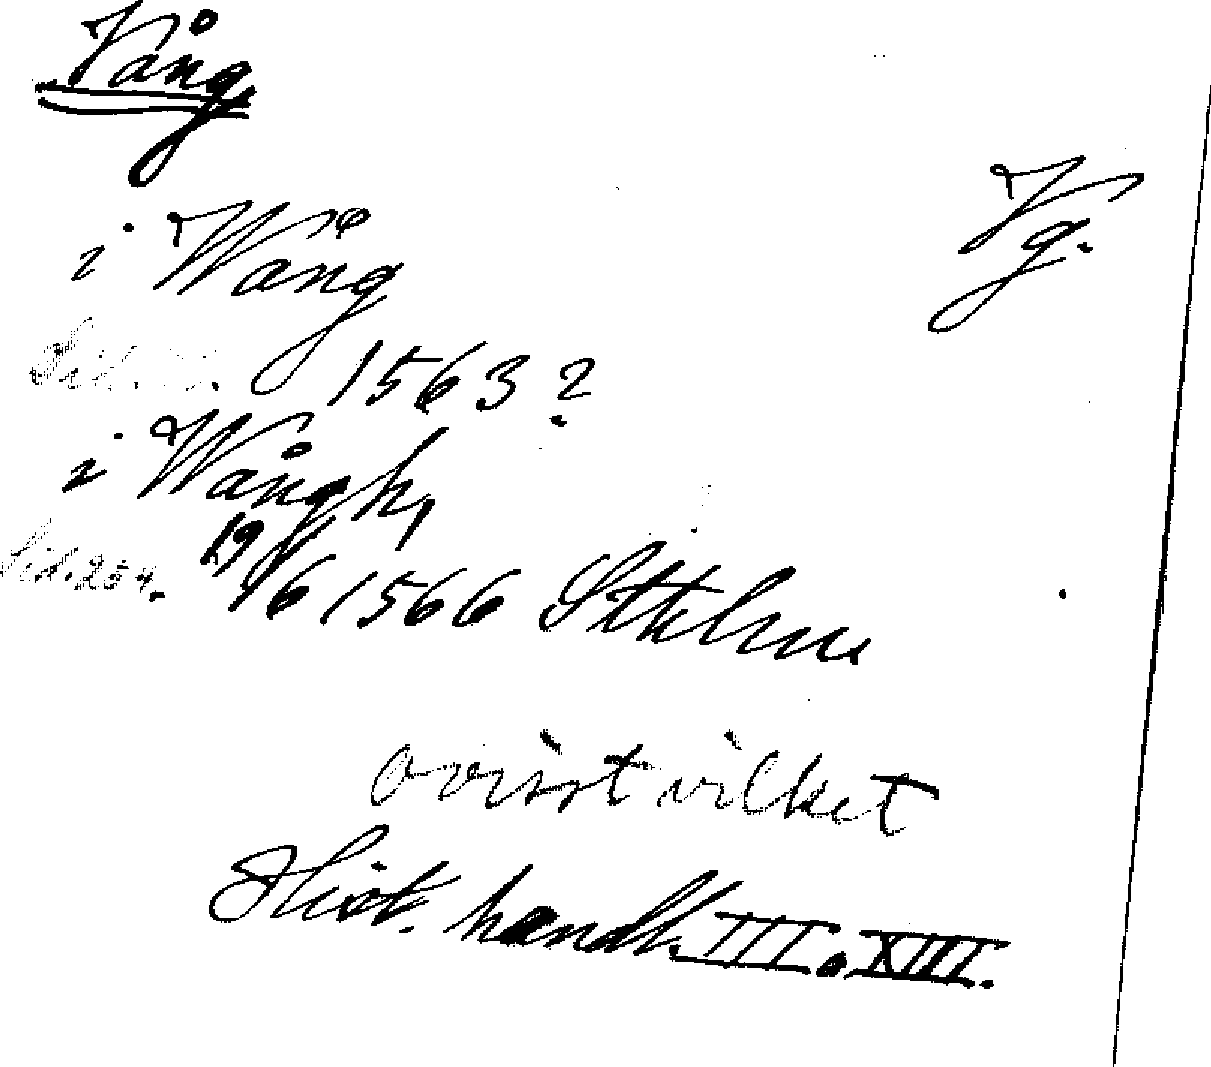 Vång
Vg.
i Wång
1563?
i Wångh,
Sid. 254. 19/6 1566 Sthlm
ovisst vilket
Hist. handl. III o XIII.